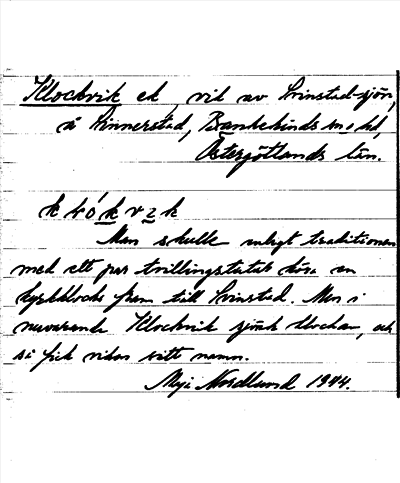 Klockvik ek, vik av Svinstad-sjön,
å Sinnerstad, Bankekinds sn o hd,
Östergötlands län.
k l ó k v ɪ k
Man skulle enligt traditionen
med ett par tvillingstutar köra en
kyrkklocka fram till Svinstad. Men i
nuvarande Klockvik sjönk klockan, och
så fick viken sitt namn.
Nordlund 1944.